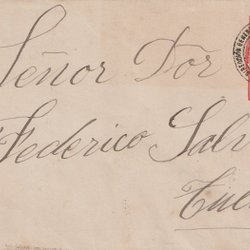 Señor Dor
Federico Salv
Cue